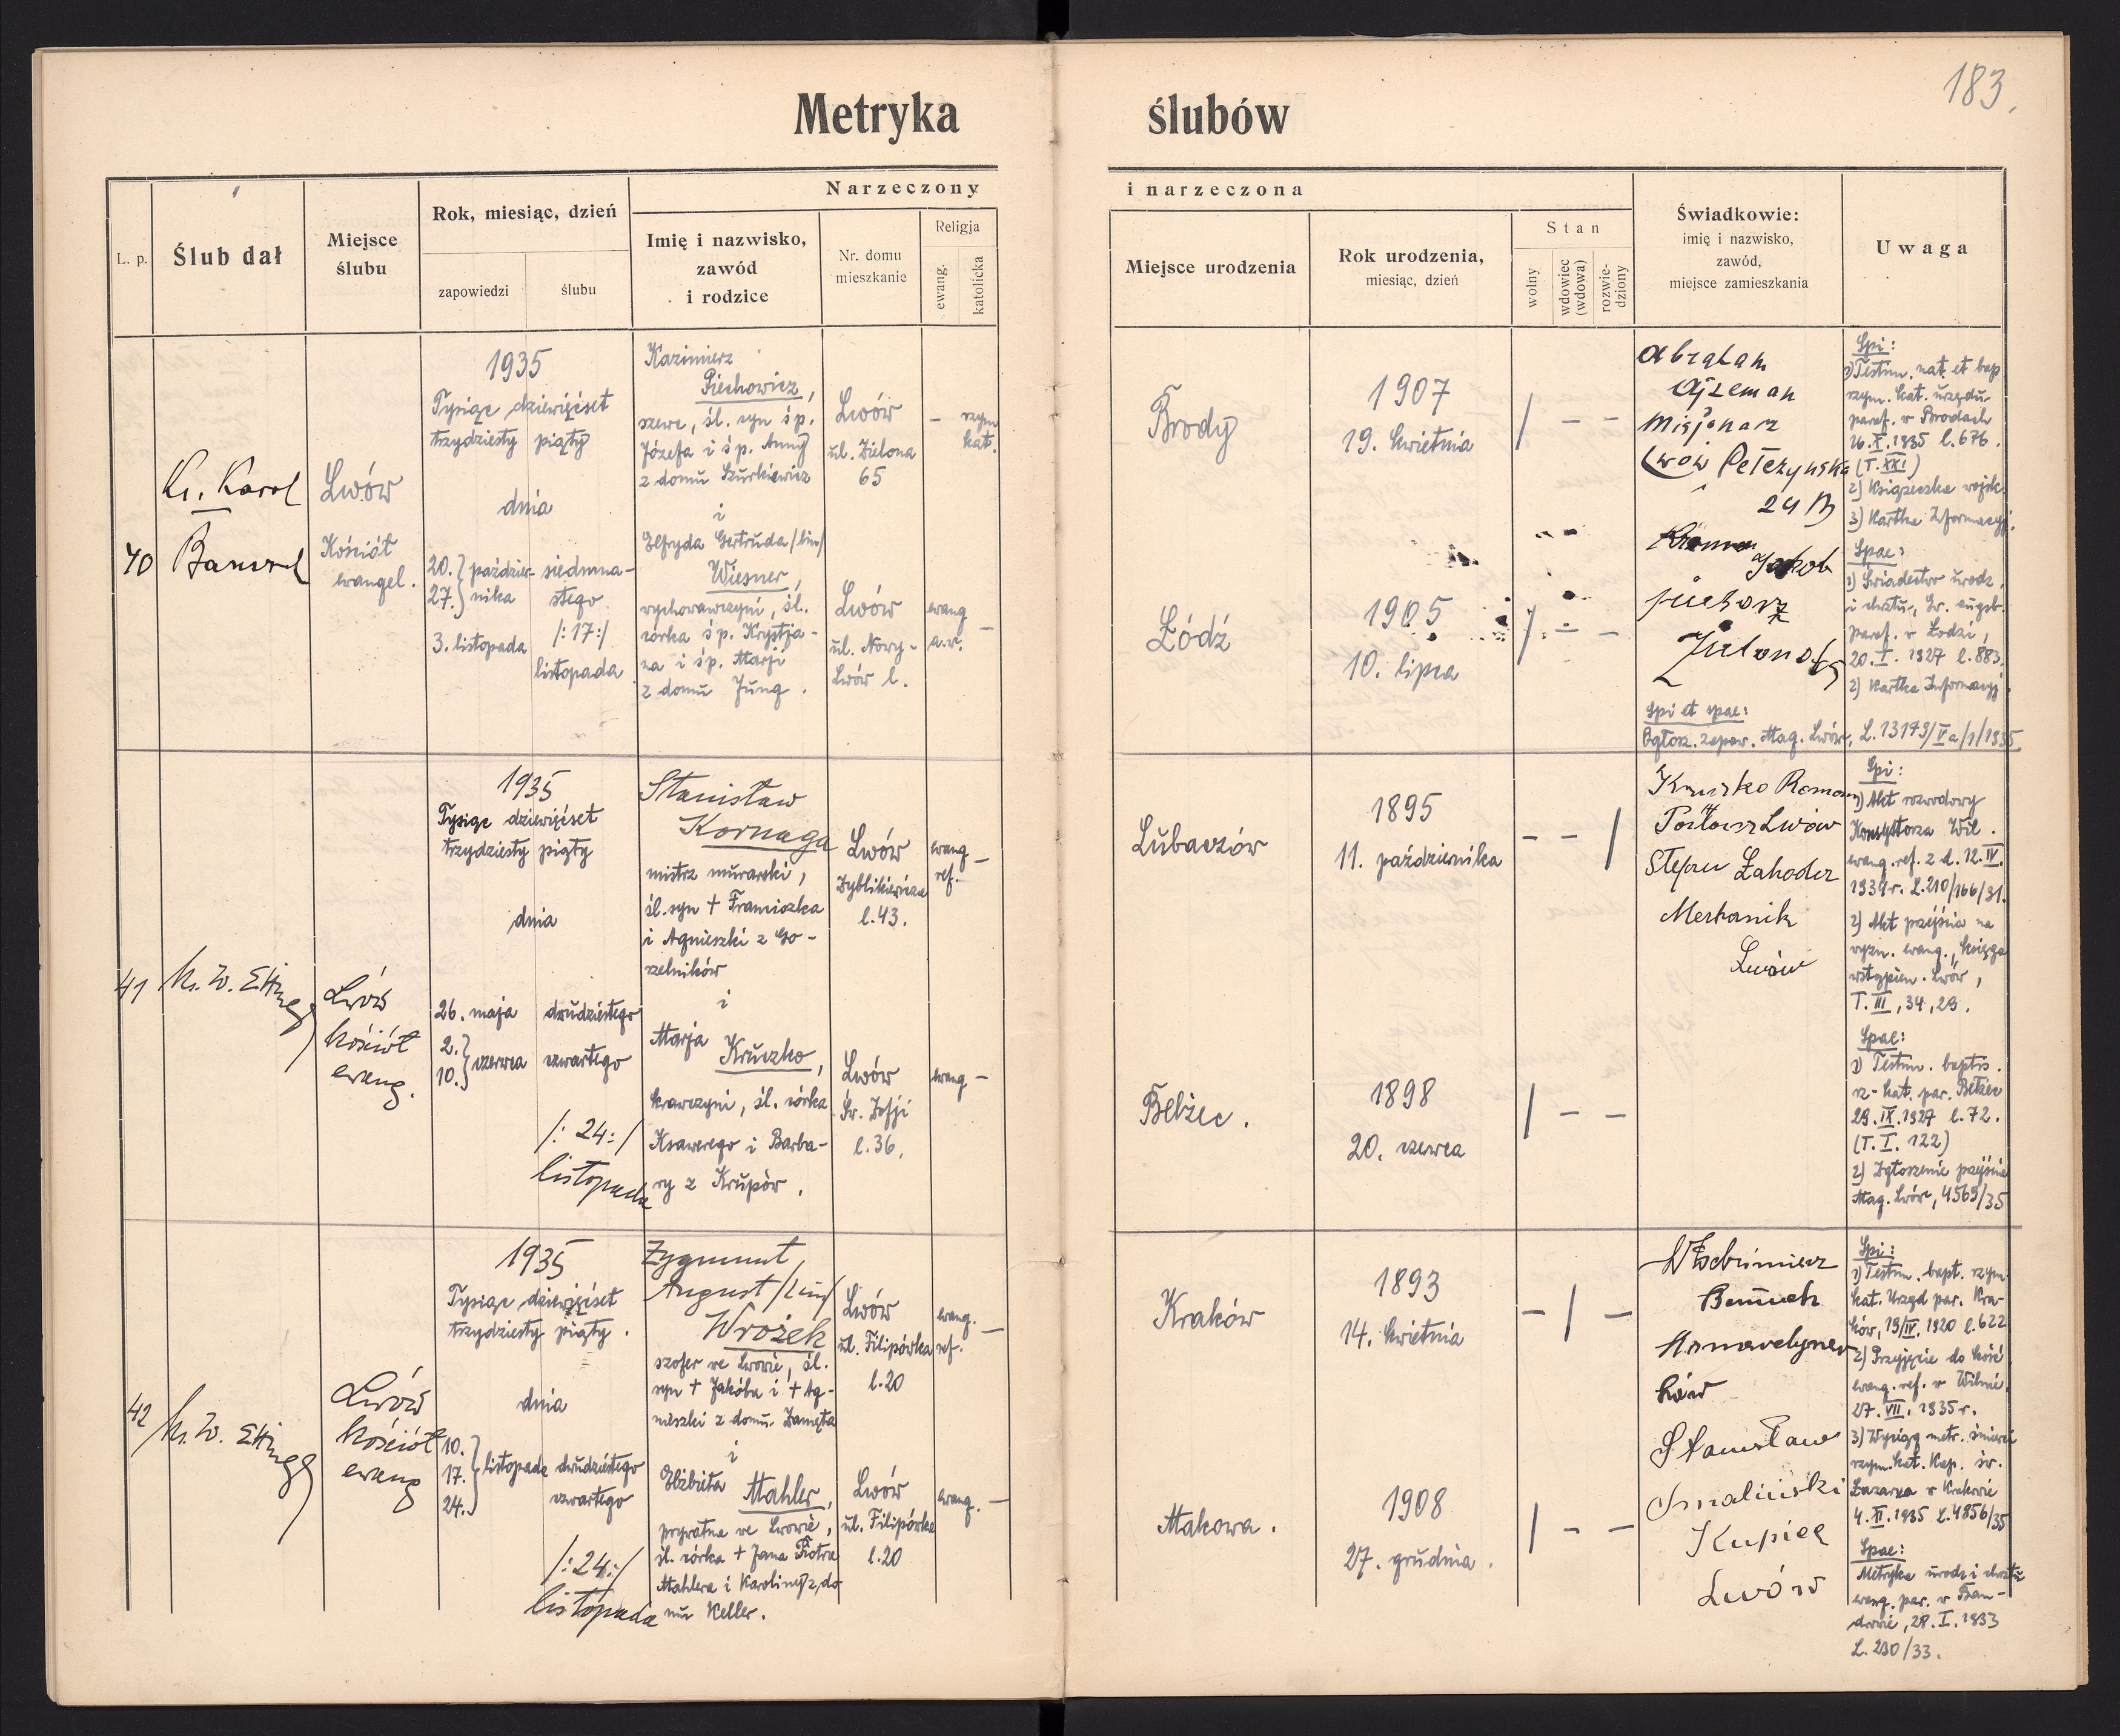 183.
Metryka ślubów
L. p.
Ślub dał
Miejsce
ślubu
Rok, miesiąc, dzień
zapowiedzi
ślubu
Narzeczony
Imię i nazwisko,
zawód
i rodzice
Nr. domu
mieszkanie
Religja
ewang.
katolicka
i narzeczona
Miejsce urodzenia
Rok urodzenia,
miesiąc, dzień
Stan
wolny
wdowiec
(wdowa)
rozwie-
dziony
Świadkowie:
imię i nazwisko,
zawód,
miejsce zamieszkania
Uwaga
40
Ks. Karol
Lwów
Kościół
ewangel.
1935
Tysiąc dziewięćset
trzydziesty piąty
dnia
20. } paździer-
27. } nika
3. listopada
siedmna-
stego
/:17:/
listopada
Kazimierz
Piechowicz,
szewc, śl. syn śp.
Józefa i śp. Anny
z domu Szurkiewicz
i
Elfryda Gertruda /2im/
Wiesner,
wychowawczyni, śl.
córka śp. Krystja-
na i śp. Marji
z domu Jung.
Lwów
ul. Zielona
65
Lwów
ul. Nowy-
Lwów l.
– rzym
kat.
ewang
a.w. –
Brody
1907
19. kwietnia
/ – –
Łódź
1905
10. lipca
/ – –
Abraham
Ajzeman
Misjonarz
Lwów Pełczyńska
24 B
Jakob
Spi et spae:
Ogłosz. zapow. Mag. Lwów, L. 13179/Va/1/1935
Spi:
1) Testim. nat. et bap
rzym. kat. urzędu
paraf. w Brodach
26.X.1935 l. 676.
(T. XXI)
2) Książeczka wojsk.
3) Kartka Informacyj.
Spae:
1) Świadectwo urodz.
i chrztu, św. augsb.
paraf. w Łodzi,
20.I.1927 l. 883.
2) Kartka Informacyj.
41
Lwów
kościół
ewang.
1935
Tysiąc dziewięćset
trzydziesty piąty
dnia
26. maja
2. }
10. } czerwca
dwudziestego
czwartego
/: 24:/
listopada
Stanisław
Kornaga
mistrz murarski,
śl. syn + Franciszka
i Agnieszki z Go-
rzelników
i
Marja
Kruczko,
krawczyni, śl. córka
Ksawerego i Barba-
ry z Krupów.
Lwów
Zyblikiewicza
l. 43.
Lwów
Św. Zofji
l. 36.
ewang –
ref.
ewang –
Lubaczów
1895
11. października
– – /
Bełżec.
1898
20. czerwca
/ – –
Kruczko Roman
Lwów
Stefan Zahoder
Merhanik
Lwów
Spi:
1) Akt rozwodowy
Konsystorza Wil.
ewang. ref. z d. 12.IV.
1934 r. L.210/166/31.
2) Akt przejścia na
wyzn. ewang., księga
wstąpien. Lwów,
T. III, 34, 29.
Spae:
1) Testim. baptis.
rz-kat. par. Bełżec
29.IX.1927 l. 72.
(T. I. 122)
2) Zgłoszenie przejścia
Mag. Lwów, 4569/35
42
Lwów
kościół
ewang
1935
Tysiąc dziewięćset
trzydziesty piąty.
dnia
10. }
17. } listopada
24. }
dwudziestego
czwartego
/:24:/
listopada
Zygmunt
August /2im/
Wrożek
szofer we Lwowie, śl.
syn + Jakóba i + Ag-
nieszki z domu Zamęta
i
Elżbieta Mahler,
prywatna we Lwowie,
śl. córka + Jana Piotra
Mahlera i Karoliny z do-
mu Keller.
Lwów
ul. Filipówka
l. 20
Lwów
ul. Filipówka
l. 20
ewang. –
ref.
ewang. –
Kraków
1893
14. kwietnia
– / –
Makowa.
1908
27. grudnia.
/ – –
Włodzimierz
Lwów
Stanisław
Smoliński
Kupiec
Lwów
Spi:
1) Testim. bapt. rzym
kat. Urząd par. Kra-
ków, 19/IV. 1920 l. 622
2) Przyjęcie do kość.
ewang. ref. w Wilnie
27. VII. 1935 r.
3) Wyciąg metr. śmierci
rzym. kat. Kap. św.
Łazarza w Krakowie
4. XI. 1935 L. 4856/35
Spae:
Metryka urodz. i chrztu
ewang. par. w Ban-
drowie, 28. I. 1933
L. 230/33.